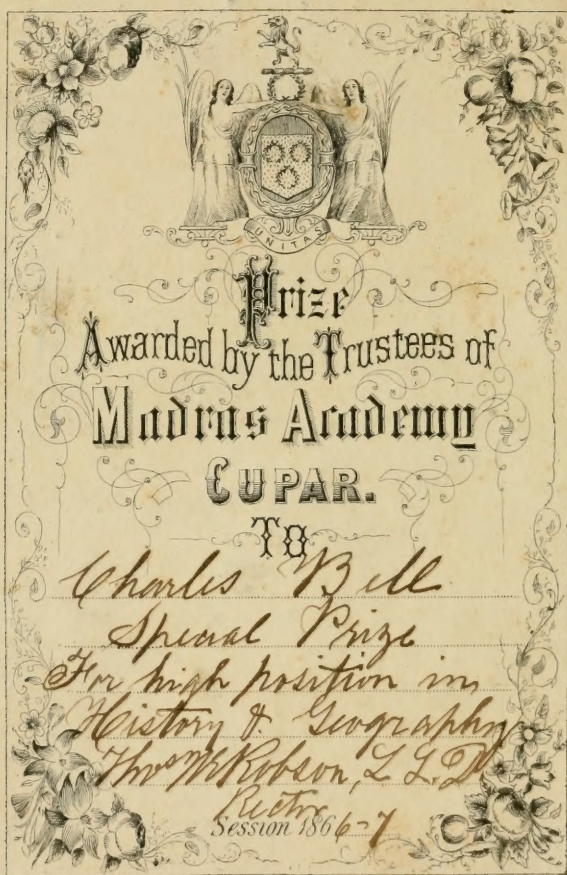 UNITAS
Prize
Awarded by the Trustees of
Madras Academy
CUPAR.
TO
Charles Bell
Special Prize
For high position in
History & Geography
Thos McRobson, L L.D.
Rector
Session 1866-7